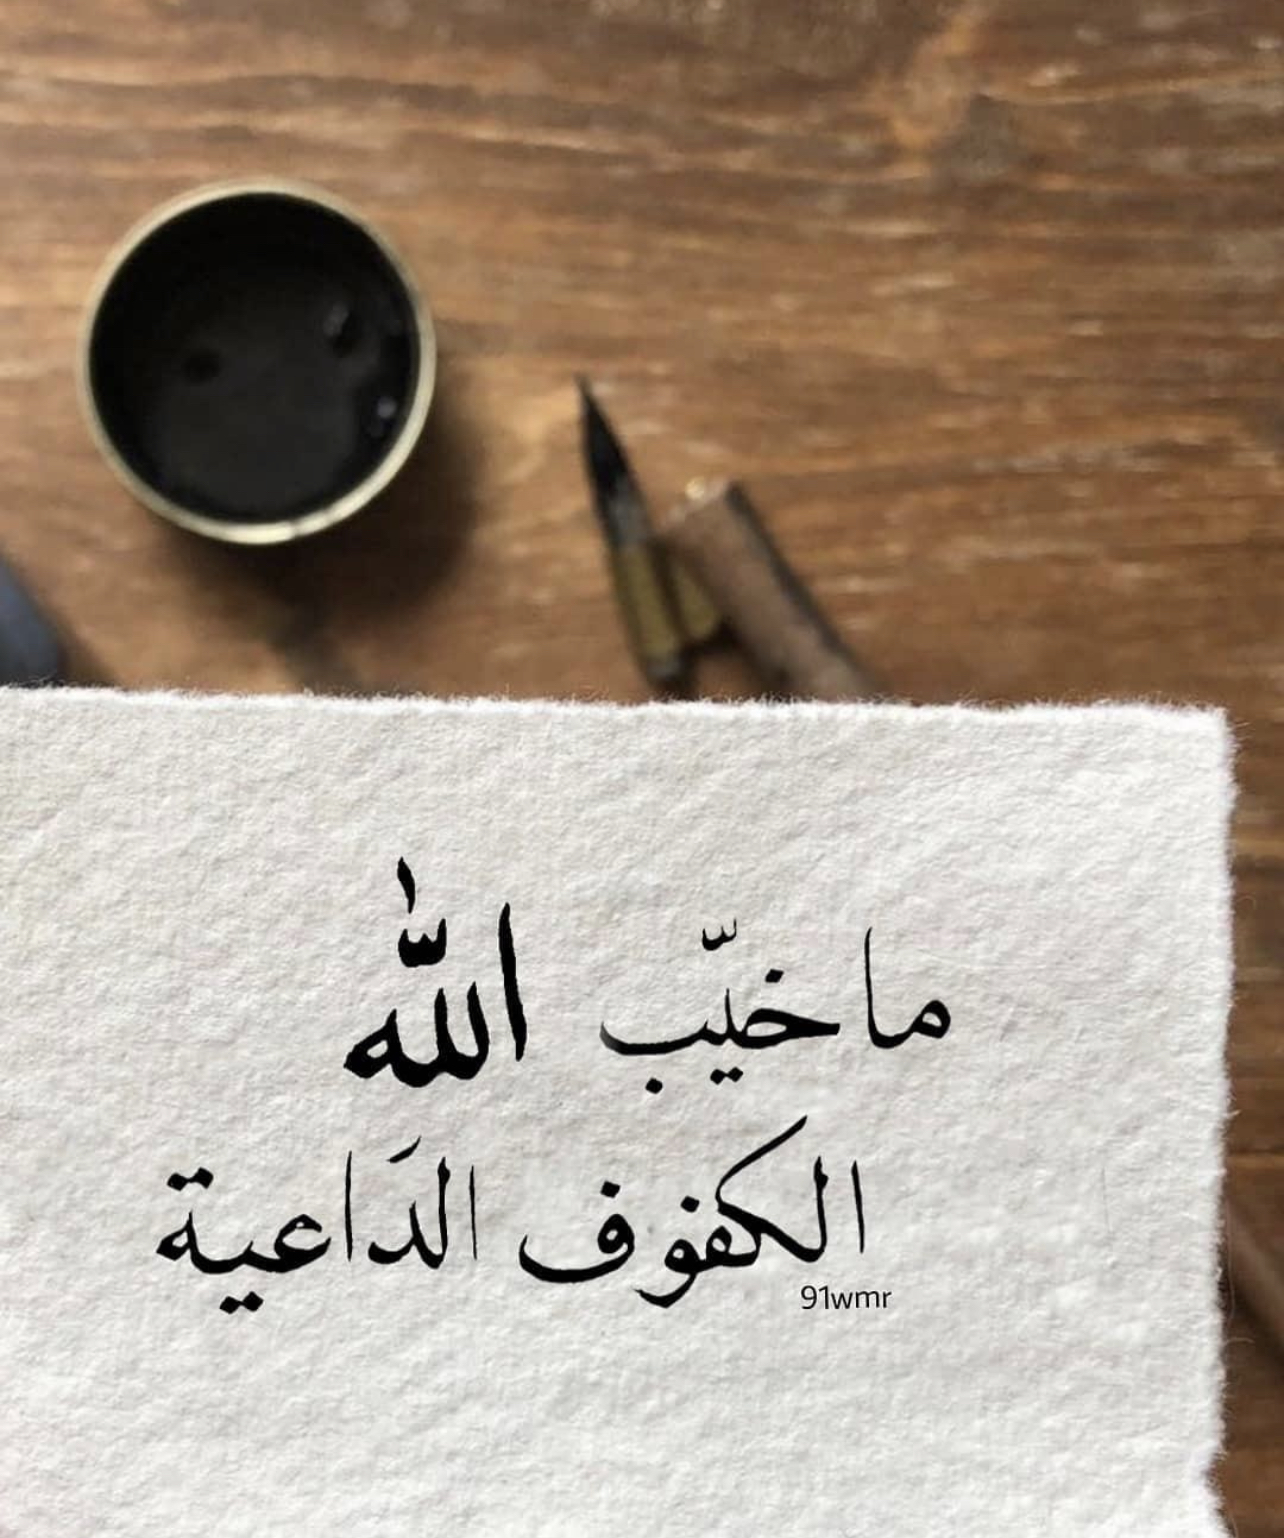 ما خيّب اللّٰه
الكفوف الدَاعية
91wmr